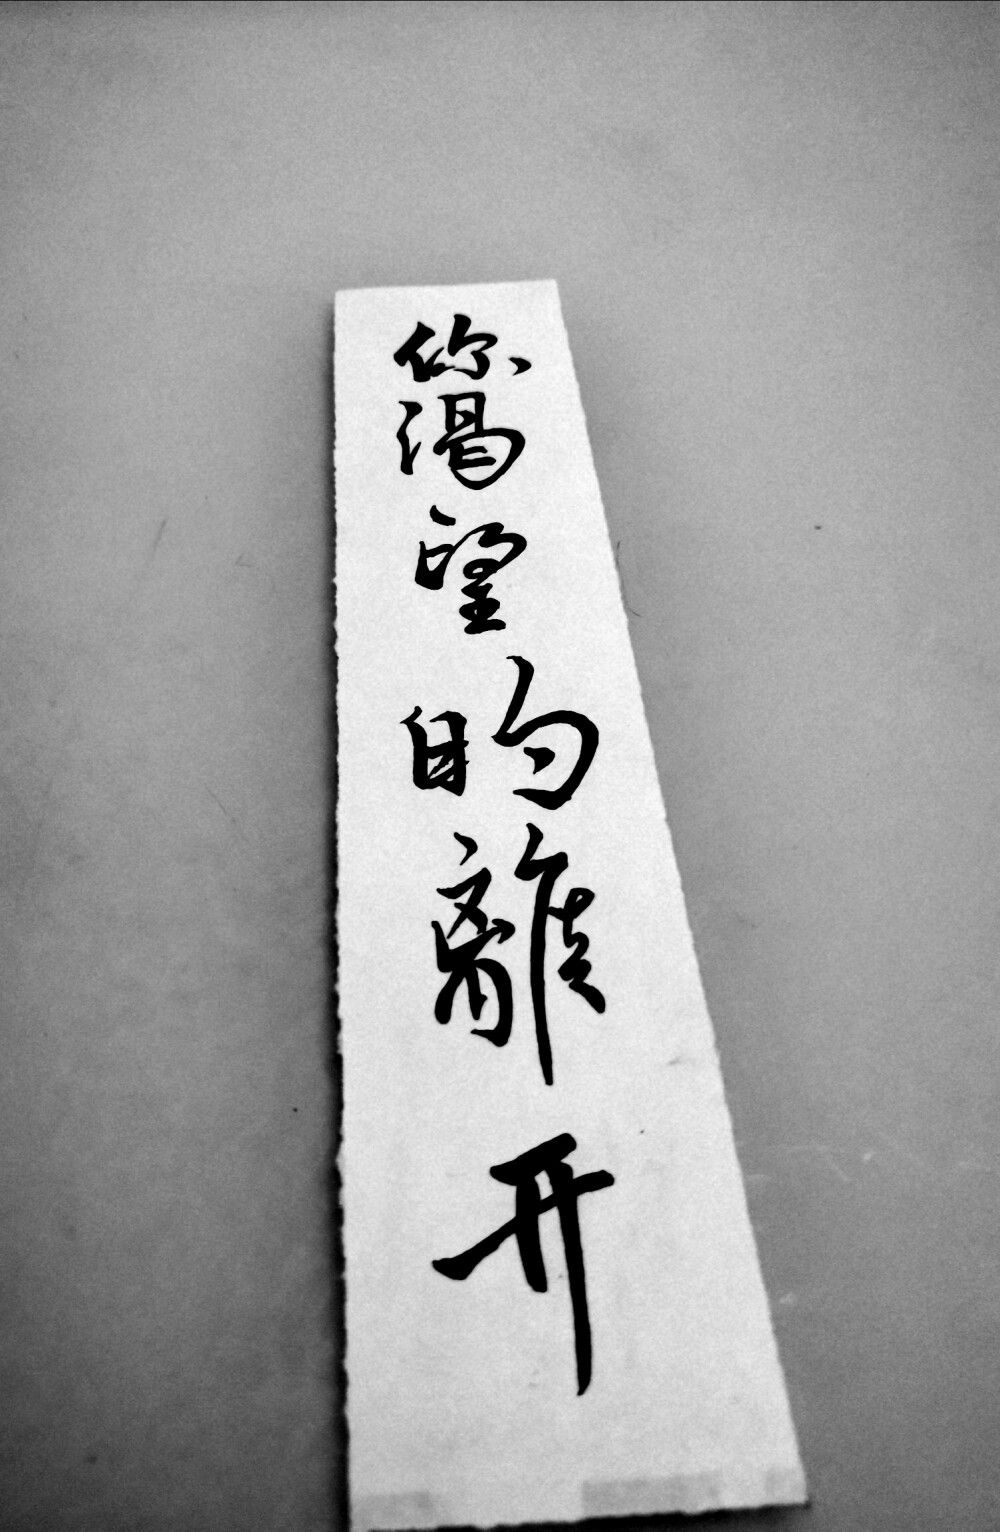 你渴望的離开